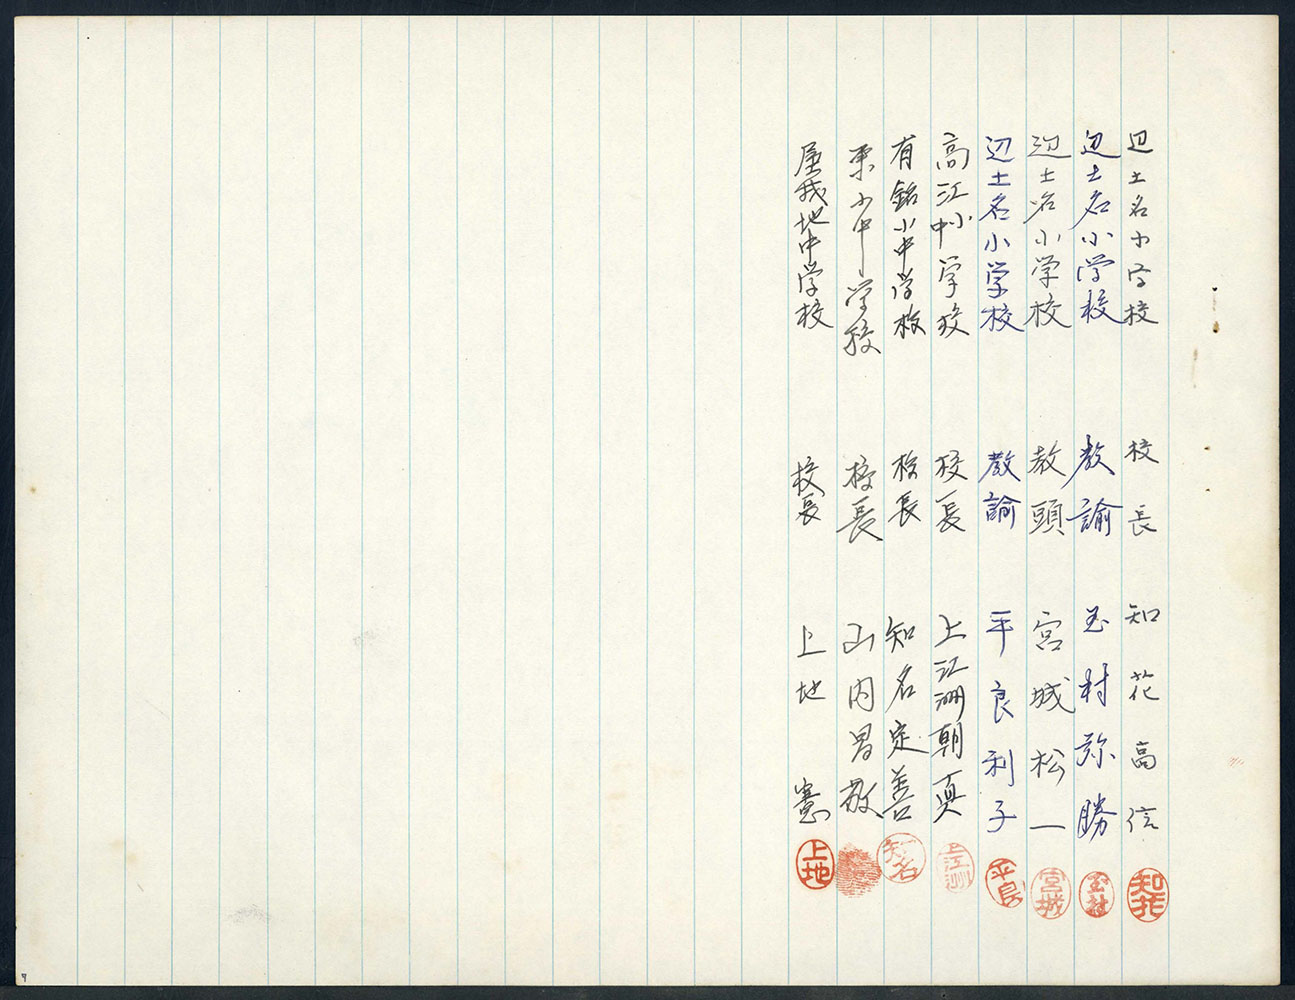 辺土名小学校 校長 知花高信 知花
辺土名小学校 教諭 玉村弥勝 玉村
辺土名小学校 教頭 宮城松一 宮城
辺土名小学校 教諭 平良利子 平良
高江小中学校 校長 上江洲朝真 上江洲
有銘小中学校 校長 知名定善 知名
東小中学校 校長 山内昌敬
屋我地中学校 校長 上地憲 上地
7